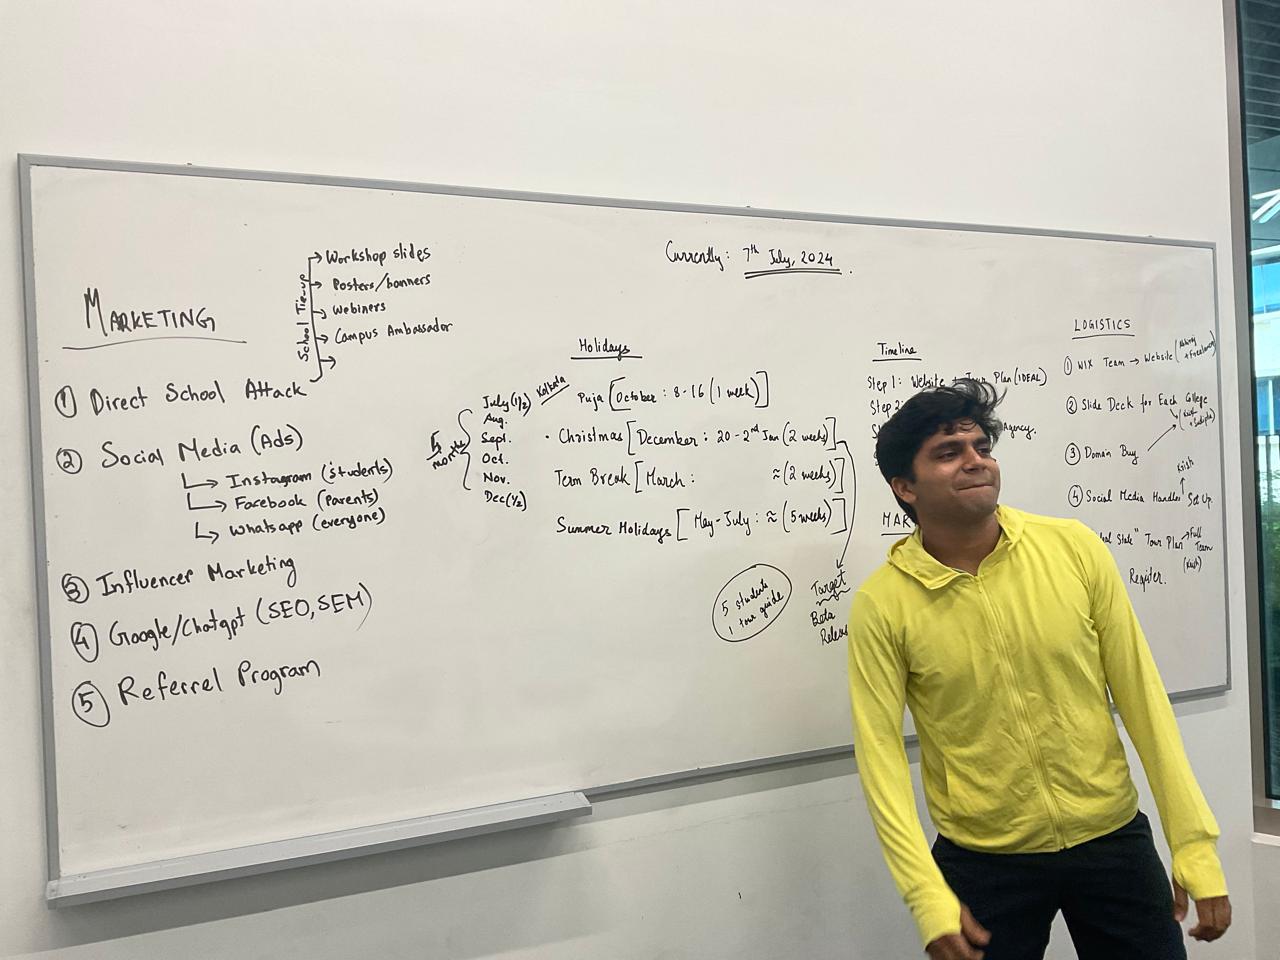 Currently: 7th July, 2024.
MARKETING
School Tie-up
Workshop slides
Posters/banners
Webiners
Campus Ambassador
① Direct School Attack
② Social Media (Ads)
Instagram (students)
Facebook (parents)
Whatsapp (everyone)
③ Influencer Marketing
④ Google/Chatgpt (SEO, SEM)
⑤ Referrel Program
5 months
July (1/2) Kolkata
Aug.
Sept.
Oct.
Nov.
Dec (1/2)
Holidays
Puja [October: 8-16 (1 week)]
• Christmas [December: 20 - 2nd Jan (2 weeks)]
Term Break [March: ≈ (2 weeks)]
Summer Holidays [May-July: ≈ (5 weeks)]
5 students
1 tour guide
Target
Beta
Timeline
Step 1: Website + Tour Plan (IDEAL)
Step 2:
Agency.
LOGISTICS
① WIX Team → Website
② Slide Deck for Each College
③ Domain Buy
④ Social Media Handles Set Up
Krish
Tour Plan → Full Team
(Krish)
Register.